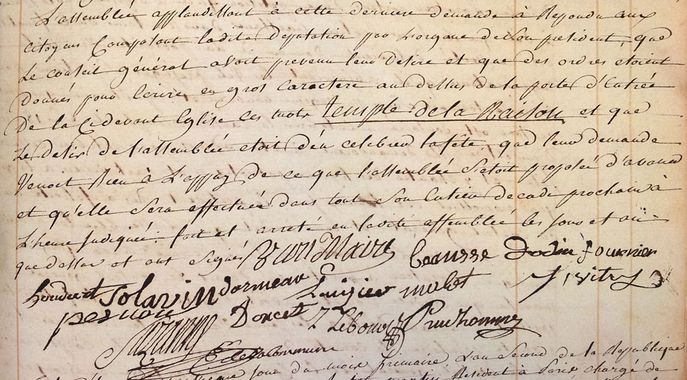 L'assemblée applaudissant à cette derniere demande à Repondu aux
citoyens Composant ladite députation par l'organe de son président, que
Le conseil général avoit prevenu leur desire et que des ordres étoient
donnés pour Ecrire en gros caractere au dessus de la porte d'Entrée
De la Cidevant Eglise ces mots temple de la Raison et que
Le desir de l'assemblée etoit d'en celebrer la fête, que leur demande
Venoit Bien à L'appuy de ce que l'assemblée s'etoit proposé d'avance
et qu'elle Sera effectuée dans tout Son Entier decadi prochain à
L'heure Indiquée. fait et arreté en ladite assemblée les jour et an
que dessus et ont signés Maire Fournier
Solavin dormeau molot
Doucet Lebour Prudhomme
jour du mois frimaire, L'an Second de la Republique
Résident à Paris chargé de